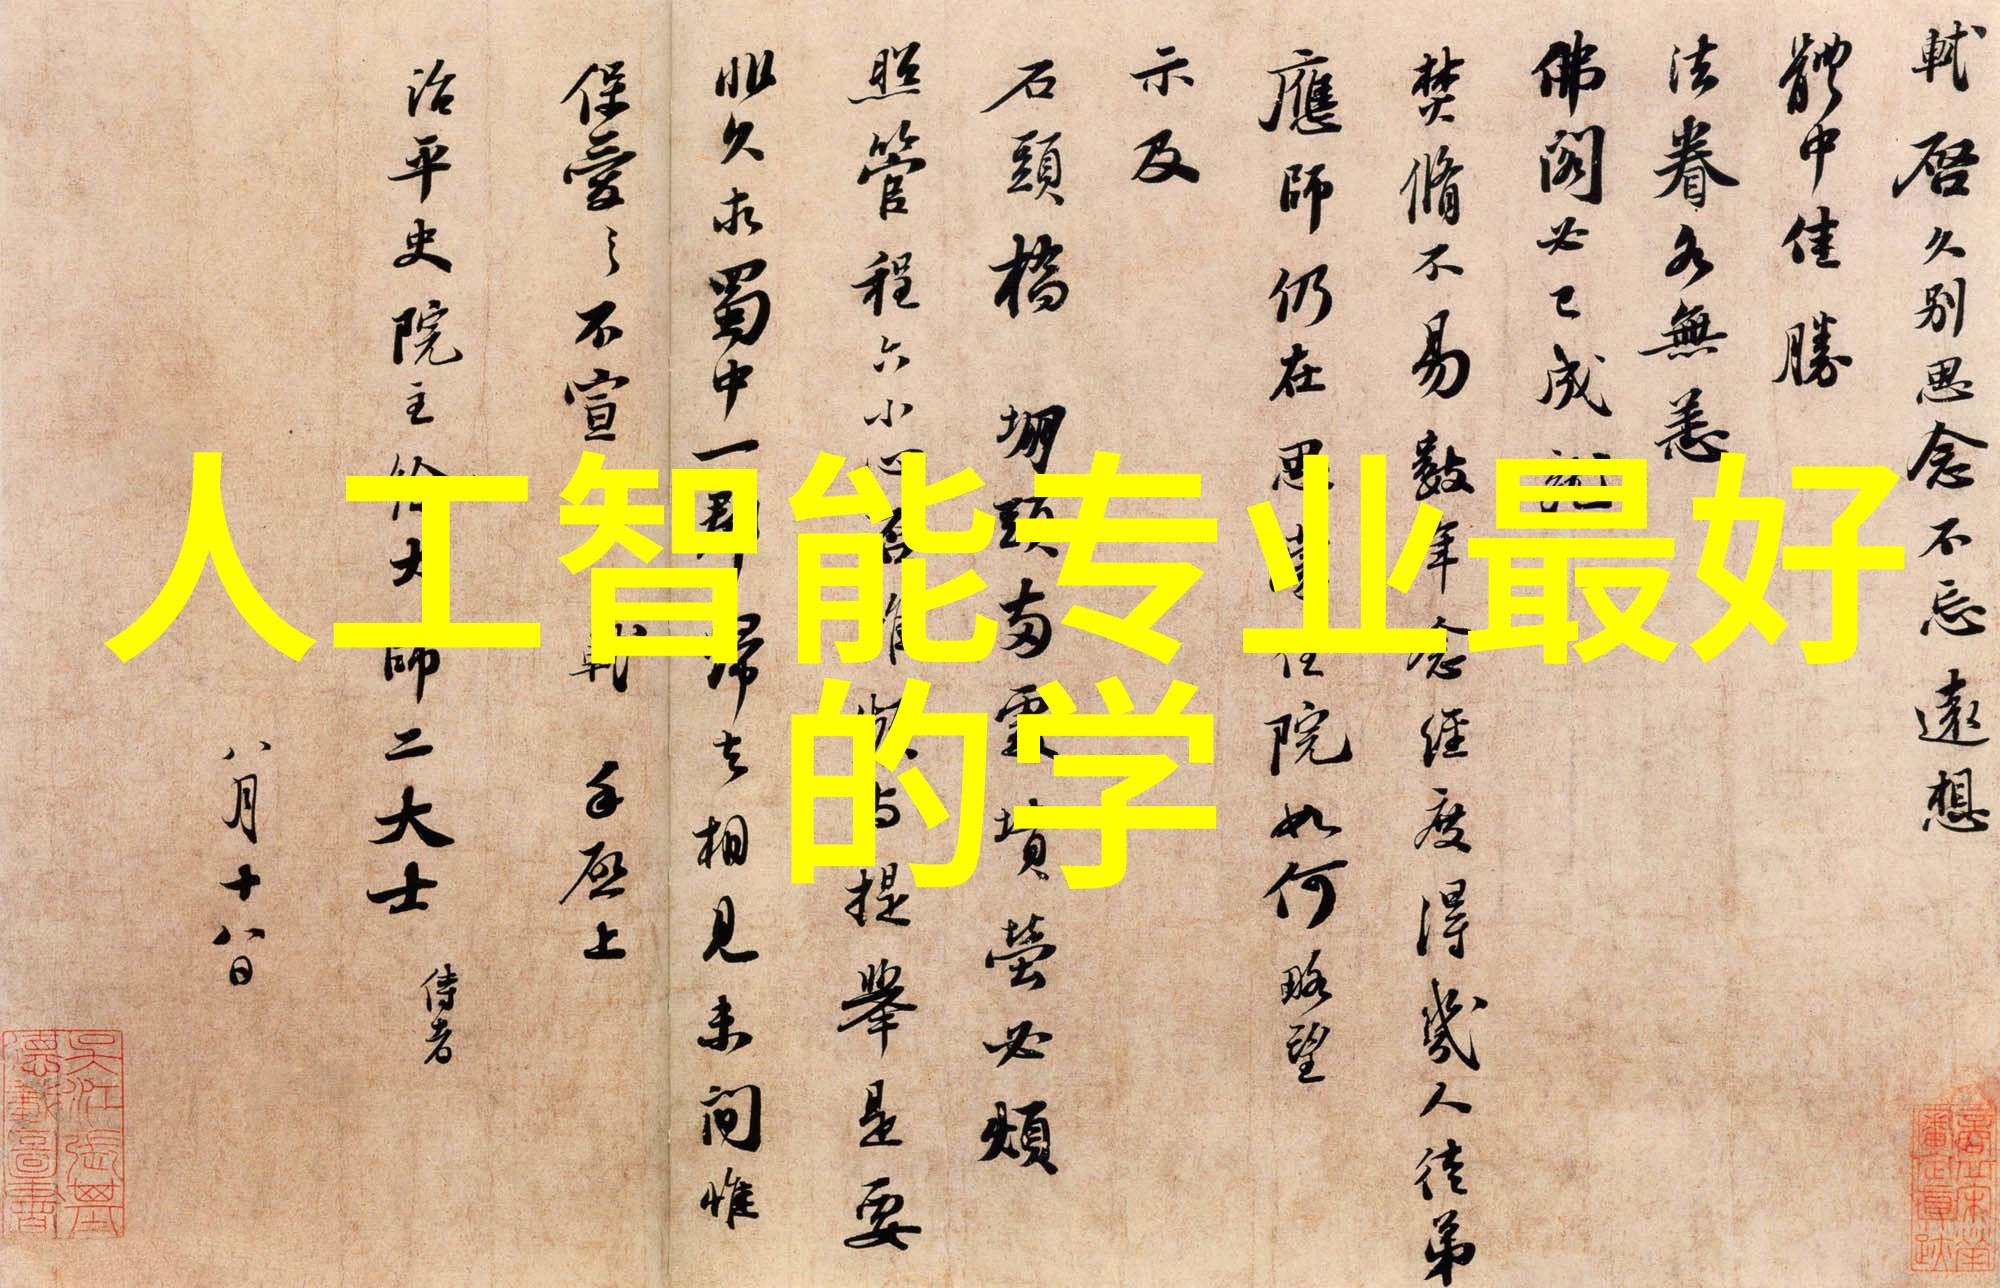 軾啓久别思念不忘遠想
體中佳勝
法眷各無恙
佛閣必已成就
焚脩不易數年念經度得幾人徒弟
應師仍在思濛住院如何略望
示及
石頭橋 堋頭兩處墳塋必煩
照管程六小心否惟頻與提舉是要
非久求蜀中一郡歸去相見未間惟
保愛之不宣 軾 手啓上
治平史院主徐大師二大士 侍者
八月十八日
人工智能专业最好
的学